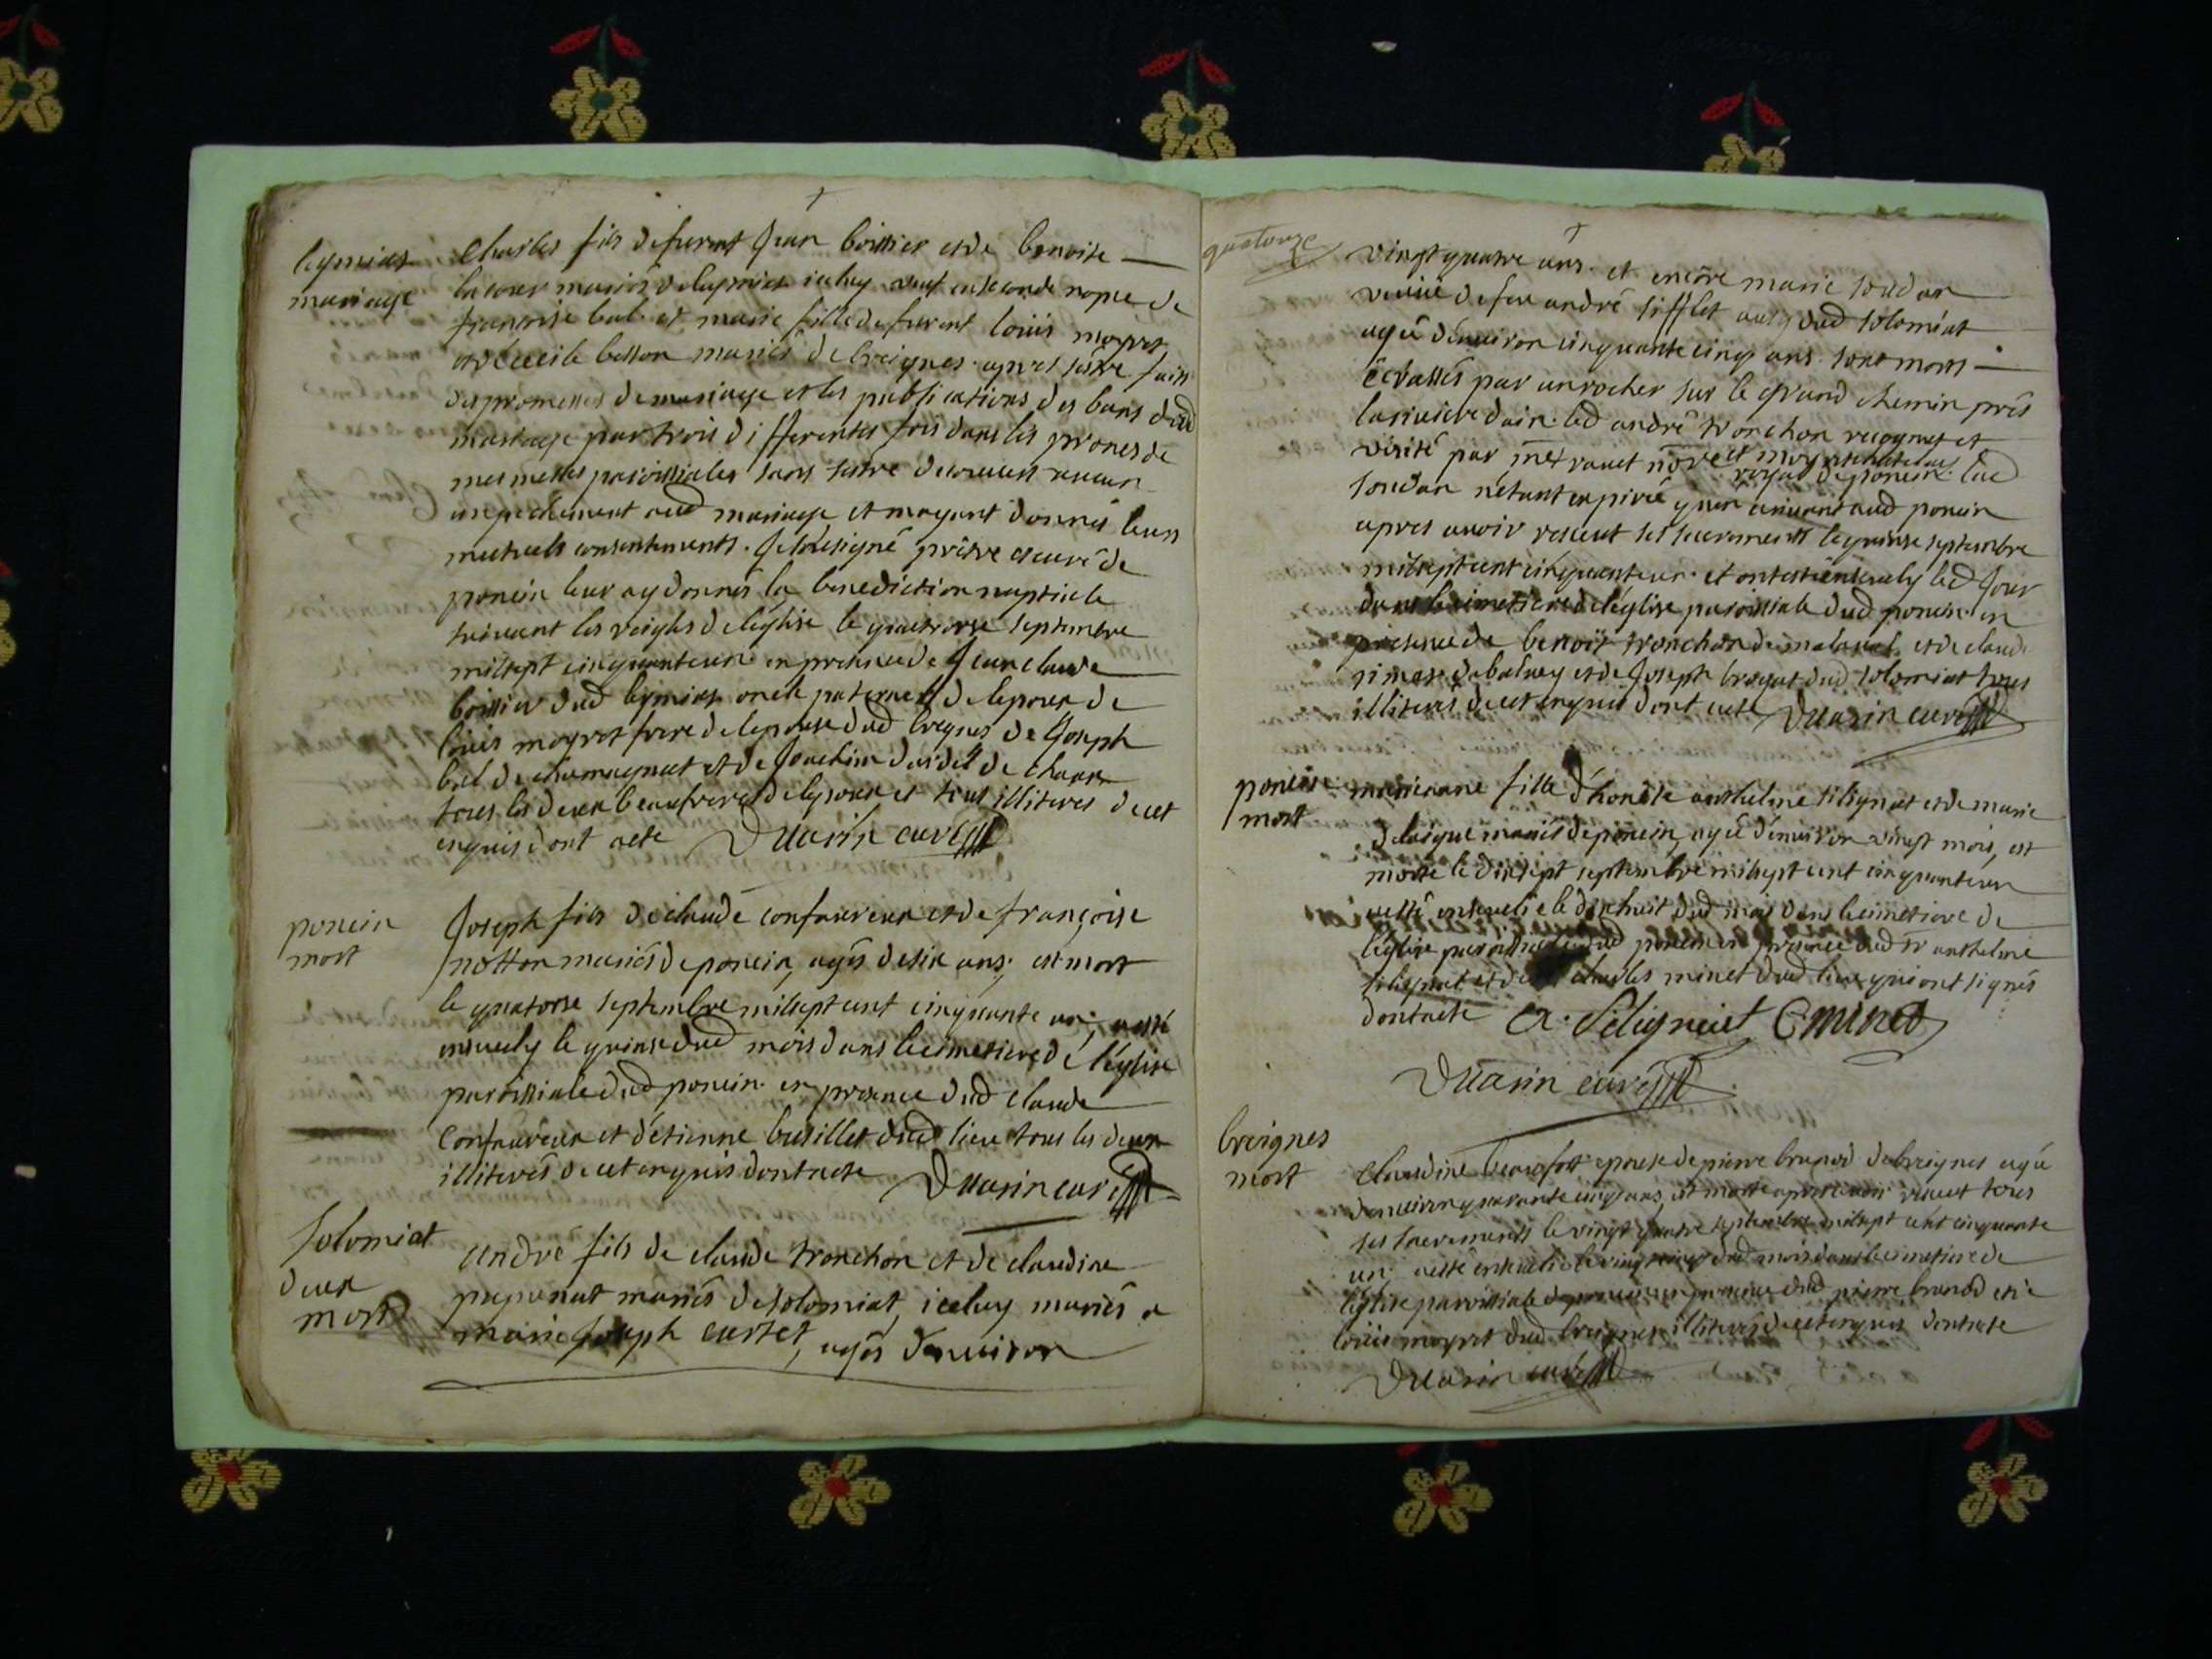 leymiat
mariage
Charles fils de furent Jean boissier et de benoite
mariés de leymiat iceluy veuf en seconde nopce de
françoise bal et marie fille de furent loüis moyret
et de cecile besson mariés de breignes apres s'estre faits
des promesses de mariage et les publications des bans dud
mariage par trois differentes fois dans les prones de
mes messes paroissiales sans s'estre decouvert aucun
empechement aud mariage et mayant donnés leurs
mutuels consentements. Je soûsigné prêtre et curé de
poncin leur ay donnés la benediction nuptiale
suivant les reigles de l'église le quatorse septembre
milsept cinquanteun en presence de Jean claude
boissier dud leymiat oncle paternel de lepoux de
loüis moyret frere de lepouse dud breignes de Joseph
bal de et de Joachim de
tous les deux beaufreres de lepoux et tous illiteres de cet
enquis dont acte Duarin curé
poncin
mort
Joseph fils de claude confavreux et de françoise
notton mariés de poncin, agés de six ans, est mort
le quatorse septembre milsept cent cinquante un, a esté
ensevely le quinse dud mois dans le cimetiere de l'église
paroissiale dud poncin en presence dud claude
Confavreux et d'étienne busillet dud lieu tous les deux
illiterés de cet enquis dont acte Duarin curé
Solomiat
deux
morts
André fils de claude tronchon et de claudine
papanut mariés de solomiat, iceluy mariés a
marie Joseph curtet, agés d'environ
quatorze
vingt quatre ans. et encôre marie soudan
veuve de feu andré sifflet aussy dud solomiat
agée d'environ cinquante cinq ans. sont morts
écrassés par un rocher sur le grand chemin prés
la riviere d'ain. led andrê tronchon recognut et
visité par me ravet nore et
royal de poncin. lad
soudan n'étant expirée qu'en arrivant aud poncin
apres avoir reseut ses sacrements le quinse septembre
milsept cent cinquanteun. et ont esté ensevely led Jour
dans le cimetiere de l'église paroissiale dud poncin en
presence de benoit tronchon de malaval et de claude
de et de Joseph brogat dud solomiat tous
illiteres de cet enquis dont acte Duarin curé
poncin
mort
marianne fille d'honête anthelme silignat et de marie
mariés de poncin, agée d'environ vingt mois, est
morte le dixsept septembre milsept cent cinquanteun
a esté ensevelie le dixhuit dud mois dans le cimetiere de
l'église paroissiale dud poncin en presence dud sr anthelme
silignat et de charles minet dud lieu qui ont signés
dont acte A. Silignat C minet
Duarin curé
breignes
mort
Claudine beaufort epouse de pierre brunod de breignes agée
d'environ quarante cinq ans, est morte apres avoir reseut tous
ses sacrements le vingt quatre septembre milsept cent cinquante
un, a esté ensevelie le vingt cinq dud mois dans le cimetiere de
l'église paroissiale de poncin en presence dud pierre brunod et de
loüis moyret dud breignes illiterés de cet enquis dont acte
Duarin curé